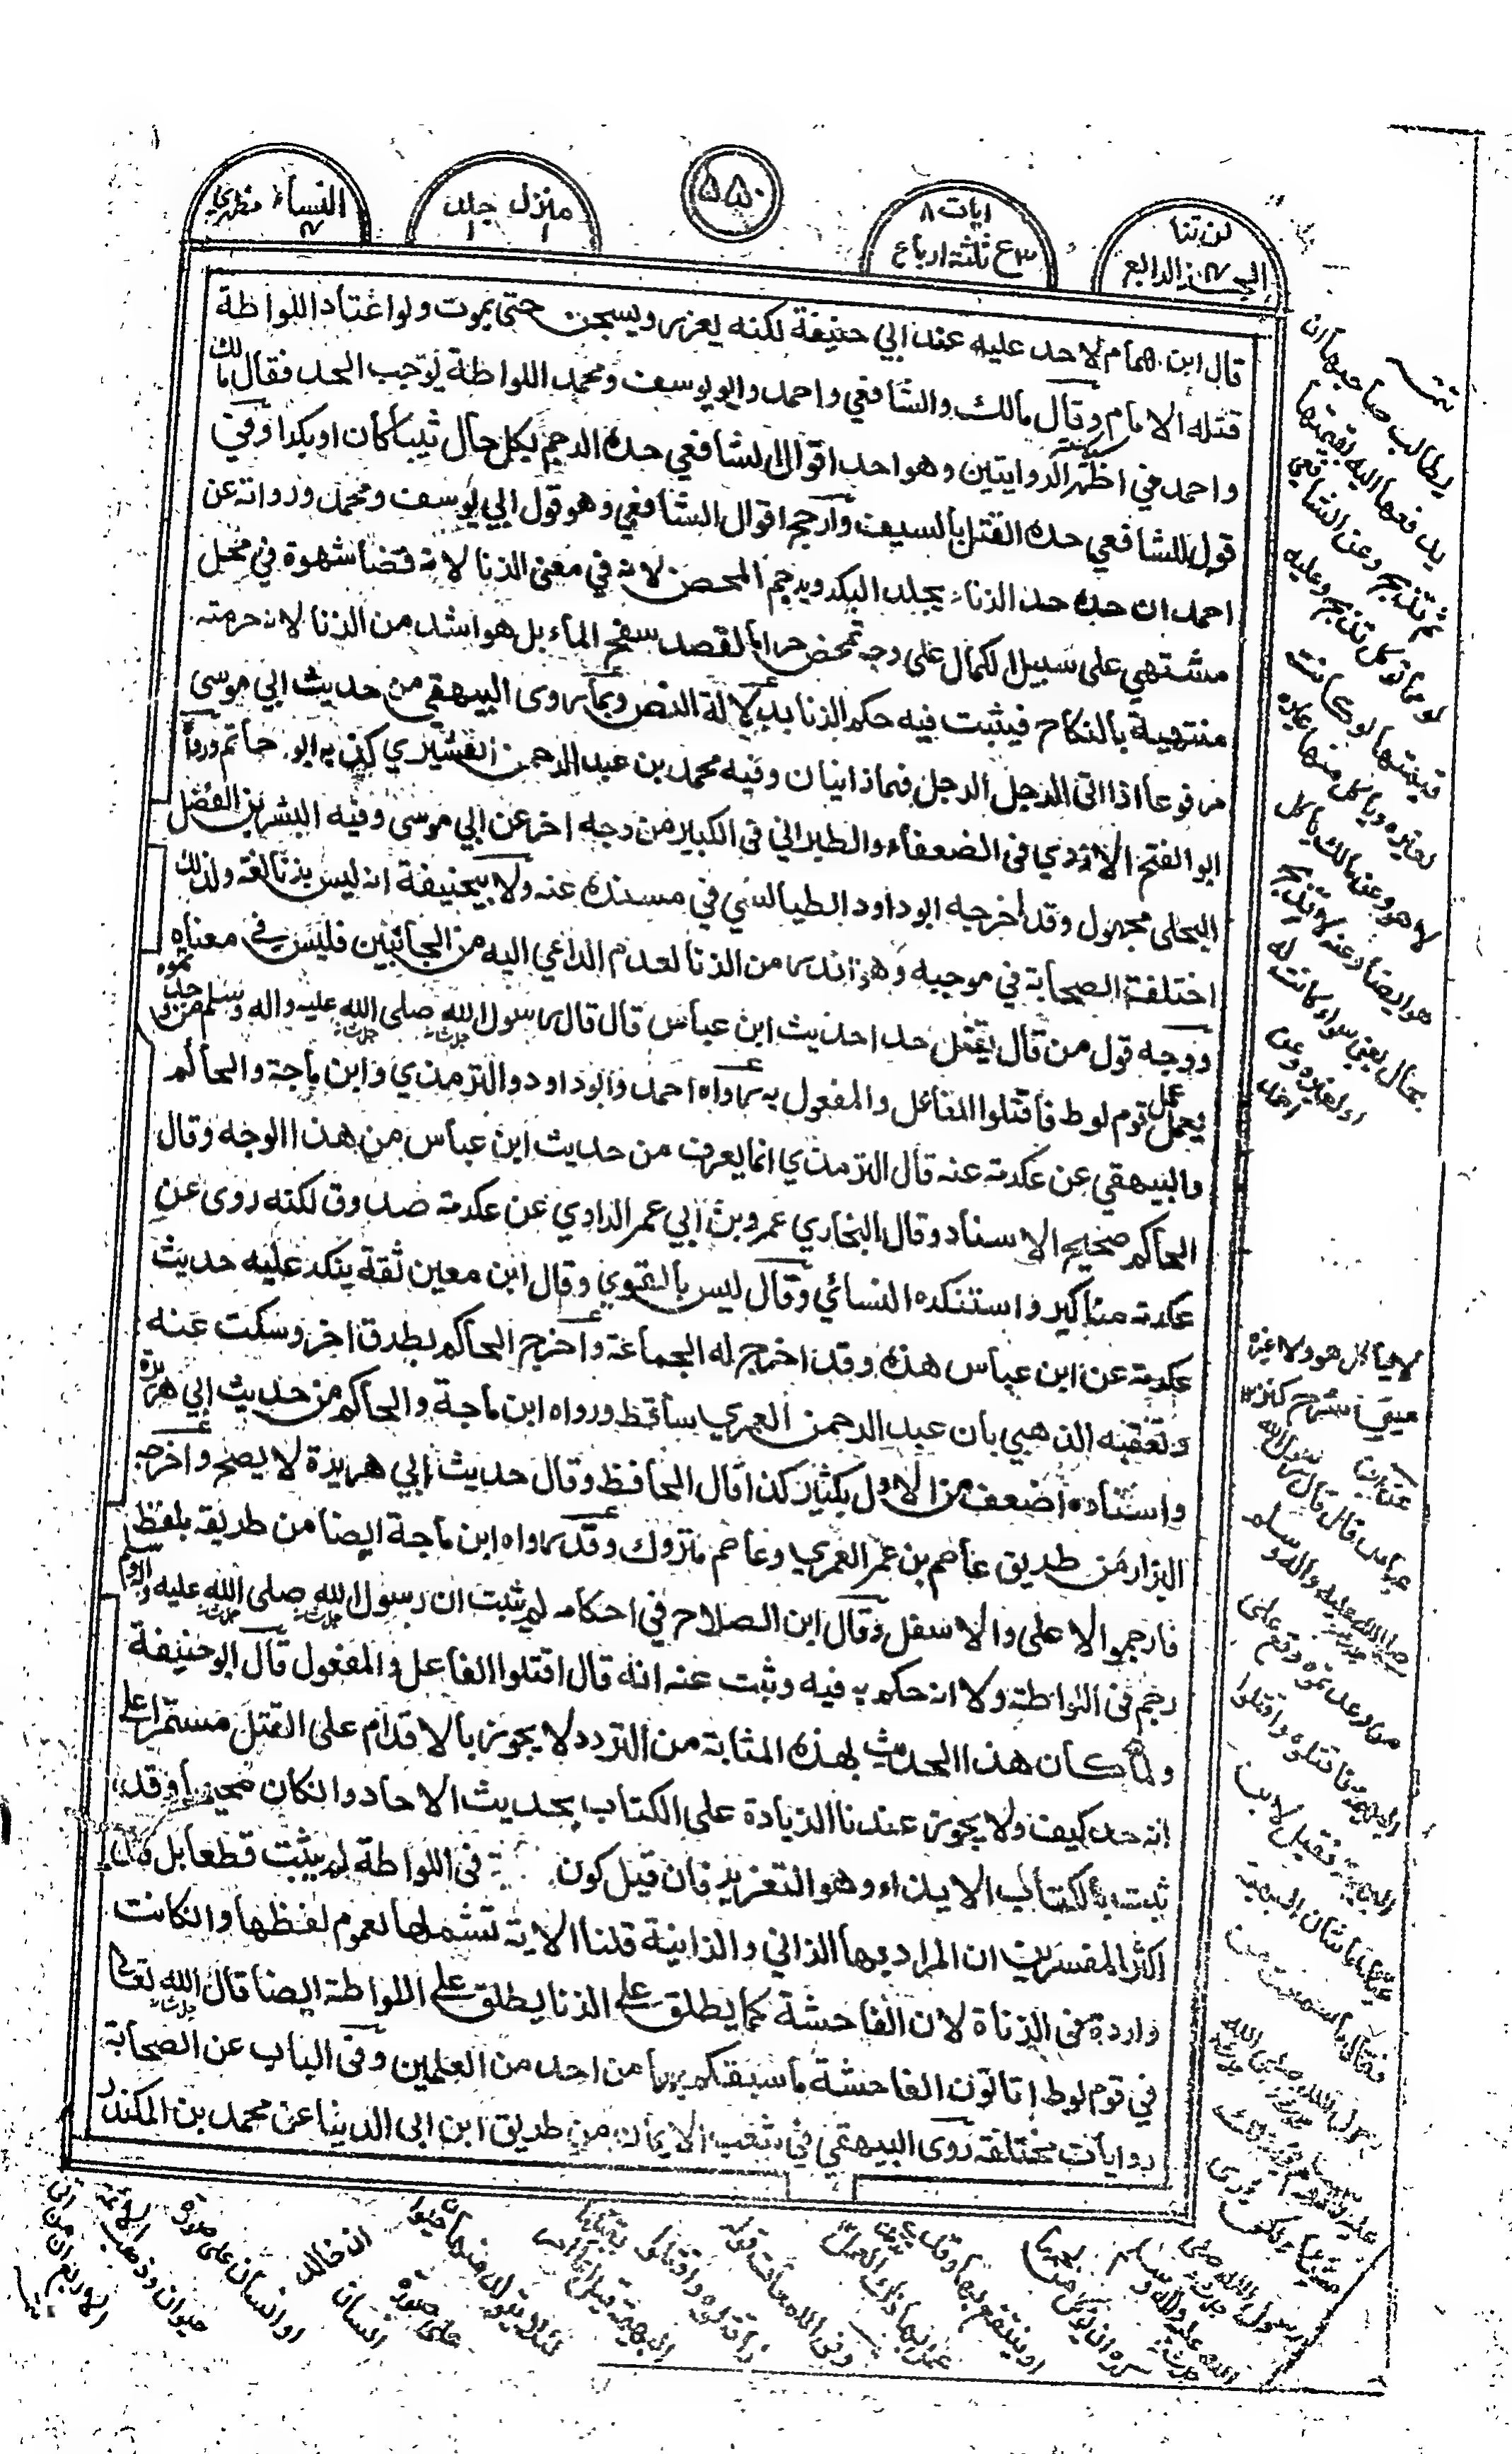 لن تنا
الجزء الرابع
ايات ٨
ع ثلثة ارباع
٥٥٠
منزل جلد
١ ١
النساء مظهري
٤
قال ابن همام لا حد عليه عند ابي حنيفة لكنه يعزر ويسجن حتى يموت ولو اعتاد اللواطة
قتله الامام وقال مالك والشافعي واحمد وابو يوسف ومحمد اللواطة يوجب الحد فقال مالك
واحمد في اظهر الروايتين وهو احد اقوال الشافعي حده الرجم بكل حال ثيبا كان او بكرا وفي
قول للشافعي حده القتل بالسيف وارجح اقوال الشافعي وهو قول ابي يوسف ومحمد ورواته عن
احمد ان حده حد الزناء يجلد البكر ويرجم المحصن لانه في معنى الزنا لانه قضا شهوة في محل
مشتهي على سبيل الكمال على وجه تمحض حراما لقصد سفح الماء بل هو اشد من الزنا لان حرمته
منتهية بالنكاح فيثبت فيه حكم الزنا بدلالة النص وبما روى البيهقي من حديث ابي موسى
مرفوعا اذا اتى الرجل الرجل فهما زانيان وفيه محمد بن عبد الرحمن القشيري كذبه ابو حاتم ورواه
ابو الفتح الازدي في الضعفاء والطبراني في الكبير من وجه اخر عن ابي موسى وفيه البشر بن الفضل
البجلى مجهول وقد اخرجه ابو داود الطيالسي في مسنده عنه ولابيحنيفة انه ليس بزنا لغة ولذلك
اختلفت الصحابة في موجبه وهو اندر من الزنا لعدم الداعي اليه من الجانبين فليس في معناه
ووجه قول من قال يقتل حدا حديث ابن عباس قال قال رسول الله صلى الله عليه واله وسلم من وجدتموه
يعمل عمل قوم لوط فاقتلوا الفاعل والمفعول به رواه احمد وابو داود والترمذي وابن ماجة والحاكم
والبيهقي عن عكرمة عنه قال الترمذي انما يعرف من حديث ابن عباس من هذا الوجه وقال
الحاكم صحيح الاسناد وقال البخاري عمرو بن ابي عمر الراوي عن عكرمة صدوق لكنه روى عن
عكرمة مناكير واستنكره النسائي وقال ليس بالقوي وقال ابن معين ثقة ينكر عليه حديث
عكرمة عن ابن عباس هذه وقد اخرج له الجماعة واخرج الحاكم بطرق اخر وسكت عنه
وتعقبه الذهبي بان عبد الرحمن العمري ساقط ورواه ابن ماجة والحاكم من حديث ابي هريرة
واسناده اضعف من الاول بكثير كذا قال الحافظ وقال حديث ابي هريرة لا يصح واخرجه
البزار من طريق عاصم بن عمر العمري وعاصم متروك وقد رواه ابن ماجة ايضا من طريقه بلفظ
فارجموا الاعلى والاسفل وقال ابن الصلاح في احكامه لم يثبت ان رسول الله صلى الله عليه واله وسلم
رجم في اللواطة ولا انه حكم به فيه وثبت عنه انه قال اقتلوا الفاعل والمفعول قال ابو حنيفة
ولما كان هذا الحديث بهذه المثابة من التردد لا يجوز بالاقدام على القتل مستمرا على
انه حد كيف ولا يجوز عندنا الزيادة على الكتاب بحديث الاحاد وانكان صحيحا وقد
ثبت بالكتاب الايذاء وهو التعزير فان قيل كون في اللواطة لم يثبت قطعا بل قال
اكثر المفسرين ان المراد بها الزاني والزانية قلنا الاية تشملها لعموم لفظها وانكانت
واردة في الزناة لان الفاحشة كما يطلق على الزنا يطلق على اللواطة ايضا قال الله تعالى
في قوم لوط اتاتون الفاحشة ما سبقكم بها من احد من العلمين وفي الباب عن الصحابة
روايات مختلفة روى البيهقي في شعب الايمان من طريق ابن ابى الدينا عن محمد بن المكندر
يطالب صاحبها ان
يدفعها اليه بقيمتها
ثم تذبح وعن الشافعي
قيمتها لو كانت
لغيره ويأكل منها غيره
لا هو وعن مالك ياكل
هو ايضا وعنه لا تذبح
بحال يعني سواء كانت له
او لغيره وعن
احمد
لا ياكل هو ولا غيره
عيني شرح كنز
عن ابن
عباس قال قال رسول الله
صلى الله عليه واله وسلم
من وجدتموه وقع على
البهيمة فاقتلوه واقتلوا
البهيمة فقيل لابن
عباس ما شان البهيمة
فقال ما سمعت من
رسول الله صلى الله